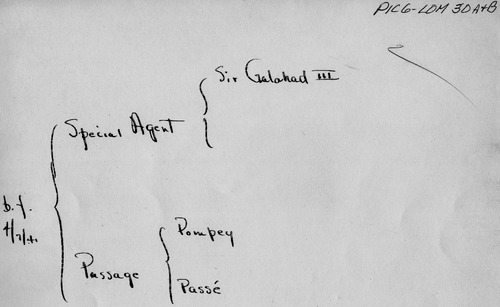 PIC6-LDM 30A+B
Sir Galahad III
Special Agent
b.f.
Pompey
Passage
Passé